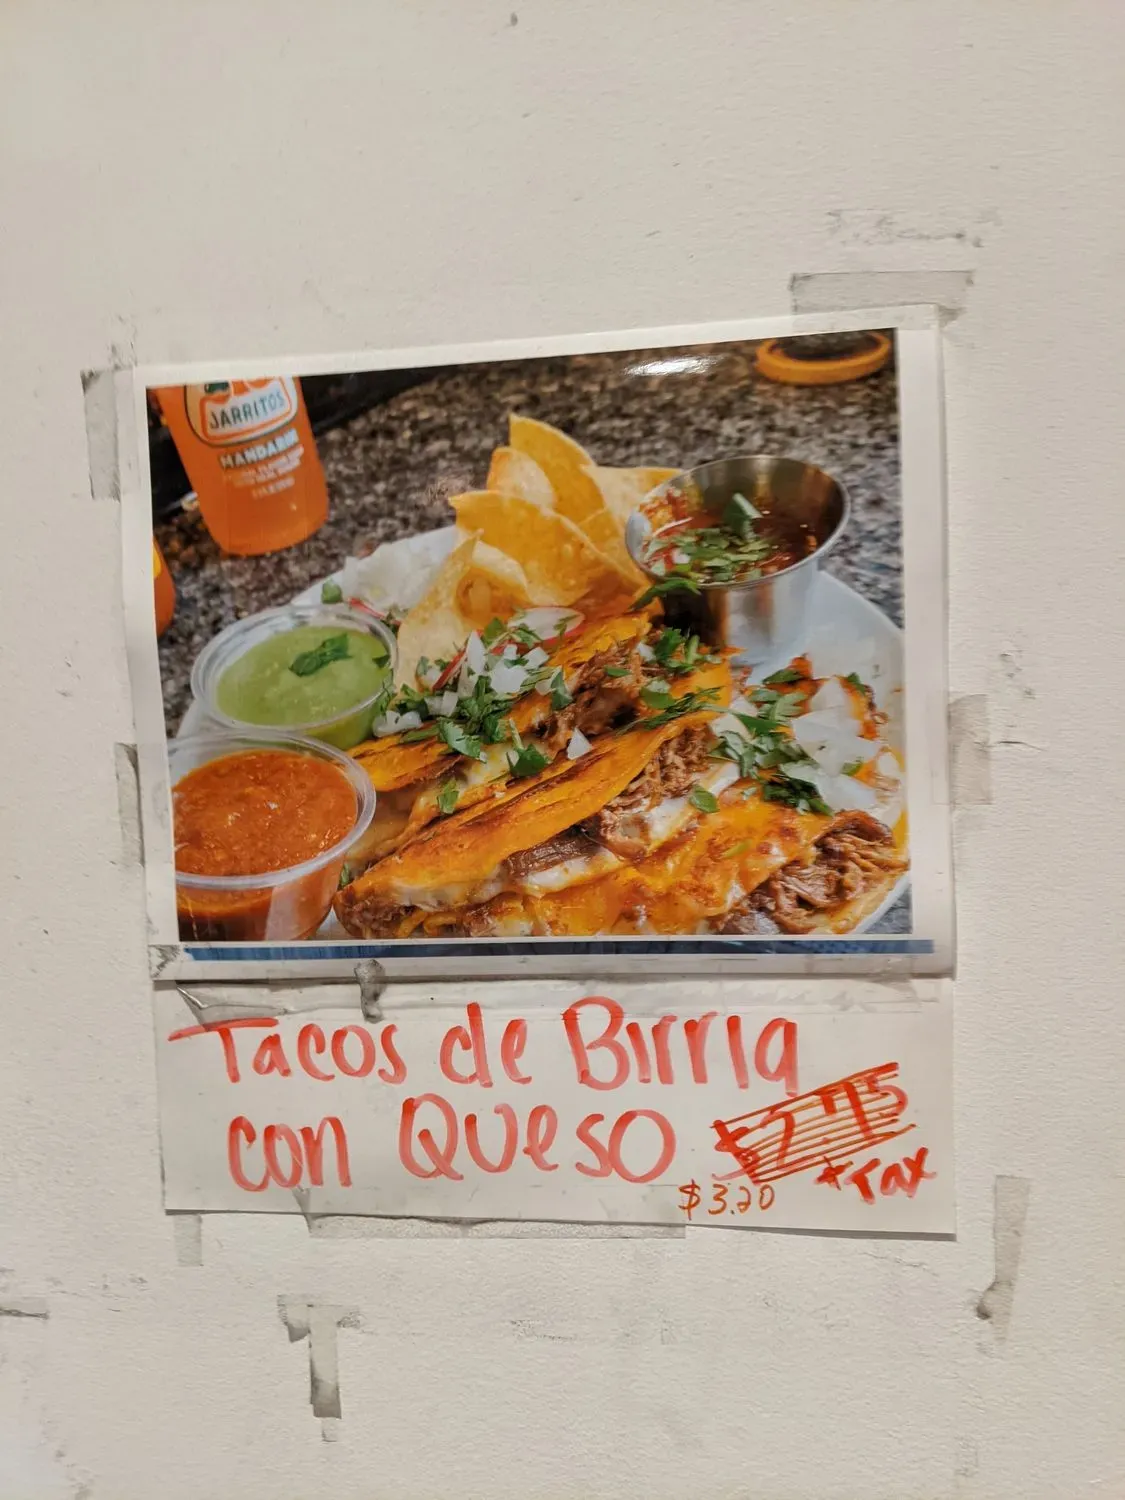 JARRITOS
MANDARIN
Tacos de Birria
con Queso $2.75
+Tax
$3.20